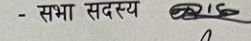 - सभा सदस्य